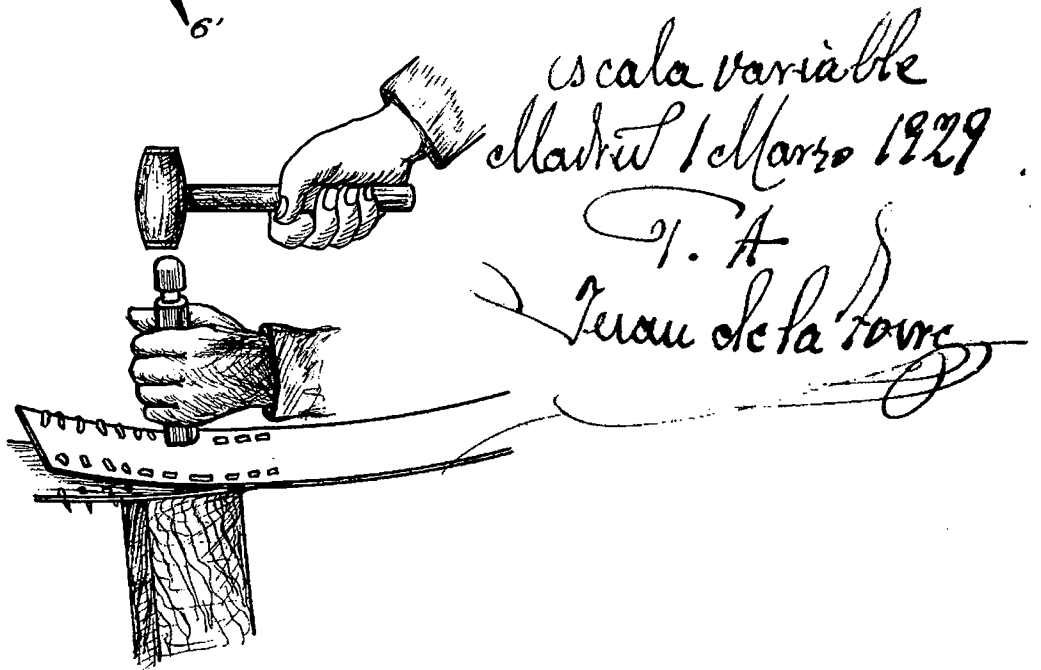 6'
escala variable
Madrid 1 Marzo 1929.
P. A
Juan de la Torre